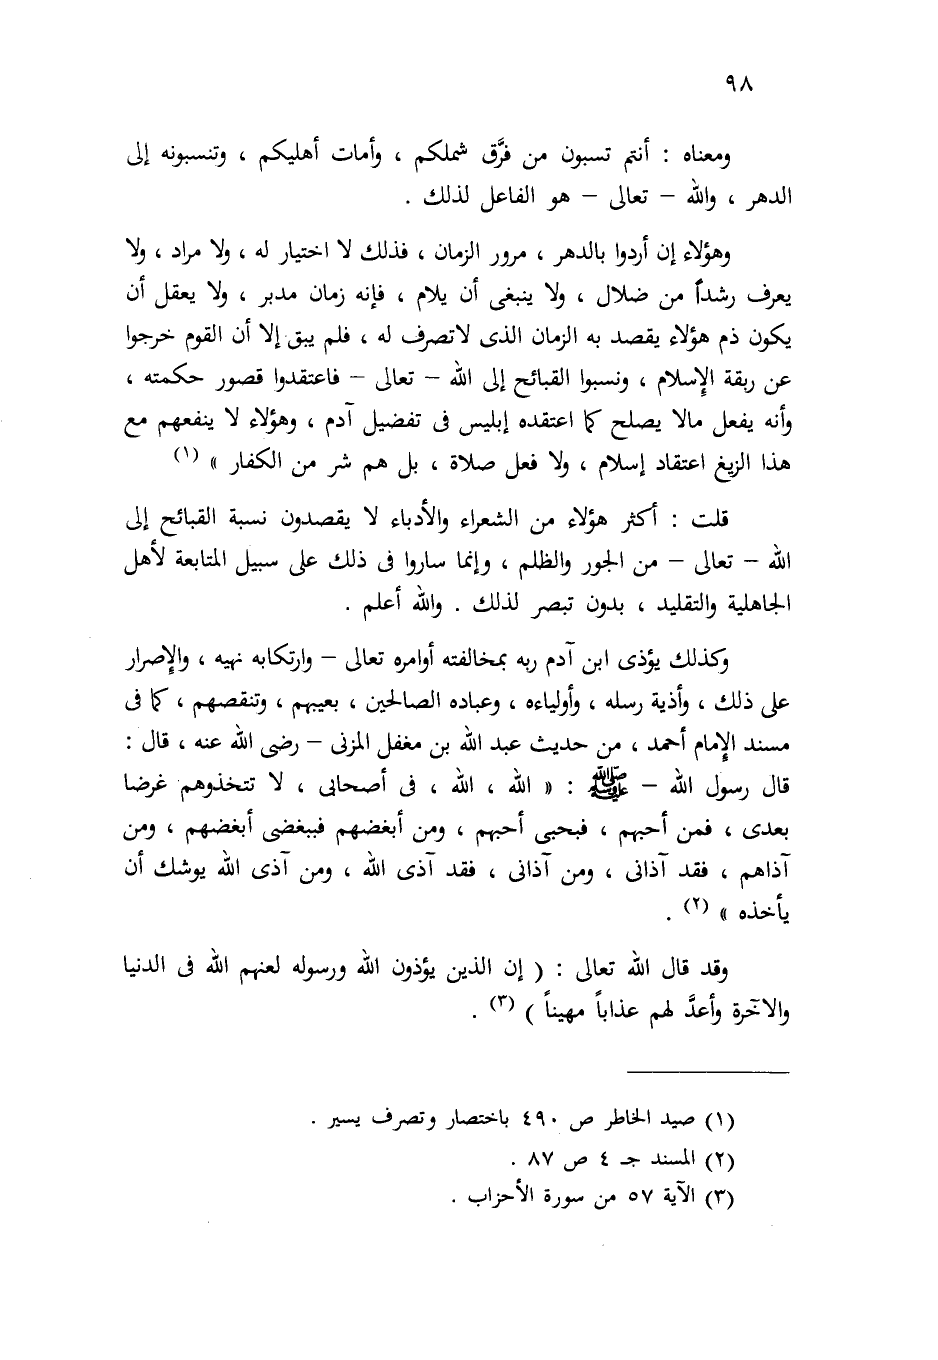 ٩٨
ومعناه : أنتم تسبون من فرَّق شملكم ، وأمات أهليكم ، وتنسبونه إلى
الدهر ، والله – تعالى – هو الفاعل لذلك .
وهؤلاء إن أردوا بالدهر ، مرور الزمان ، فذلك لا اختيار له ، ولا مراد ، ولا
يعرف رشداً من ضلال ، ولا ينبغى أن يلام ، فإنه زمان مدبر ، ولا يعقل أن
يكون ذم هؤلاء يقصد به الزمان الذى لاتصرف له ، فلم يبق إلا أن القوم خرجوا
عن ربقة الإسلام ، ونسبوا القبائح إلى الله – تعالى – فاعتقدوا قصور حكمته ،
وأنه يفعل مالا يصلح كما اعتقده إبليس فى تفضيل آدم ، وهؤلاء لا ينفعهم مع
هذا الزيغ اعتقاد إسلام ، ولا فعل صلاة ، بل هم شر من الكفار » (١)
قلت : أكثر هؤلاء من الشعراء والأدباء لا يقصدون نسبة القبائح إلى
الله – تعالى – من الجور والظلم ، وإنما ساروا فى ذلك على سبيل المتابعة لأهل
الجاهلية والتقليد ، بدون تبصر لذلك . والله أعلم .
وكذلك يؤذى ابن آدم ربه بمخالفته أوامره تعالى – وارتكابه نهيه ، والإصرار
على ذلك ، وأذية رسله ، وأولياءه ، وعباده الصالحين ، بعيبهم ، وتنقصهم ، كما فى
مسند الإمام أحمد ، من حديث عبد الله بن مغفل المزنى – رضى الله عنه ، قال :
قال رسول الله – ﷺ : « الله ، الله ، فى أصحابى ، لا تتخذوهم غرضا
بعدى ، فمن أحبهم ، فبحبى أحبهم ، ومن أبغضهم فببغضى أبغضهم ، ومن
آذاهم ، فقد آذانى ، ومن آذانى ، فقد آذى الله ، ومن آذى الله يوشك أن
يأخذه » (٢) .
وقد قال الله تعالى : ( إن الذين يؤذون الله ورسوله لعنهم الله فى الدنيا
والآخرة وأعدَّ لهم عذاباً مهيناً ) (٣) .
(١) صيد الخاطر ص ٤٩٠ باختصار وتصرف يسير .
(٢) المسند جـ ٤ ص ٨٧ .
(٣) الآية ٥٧ من سورة الأحزاب .